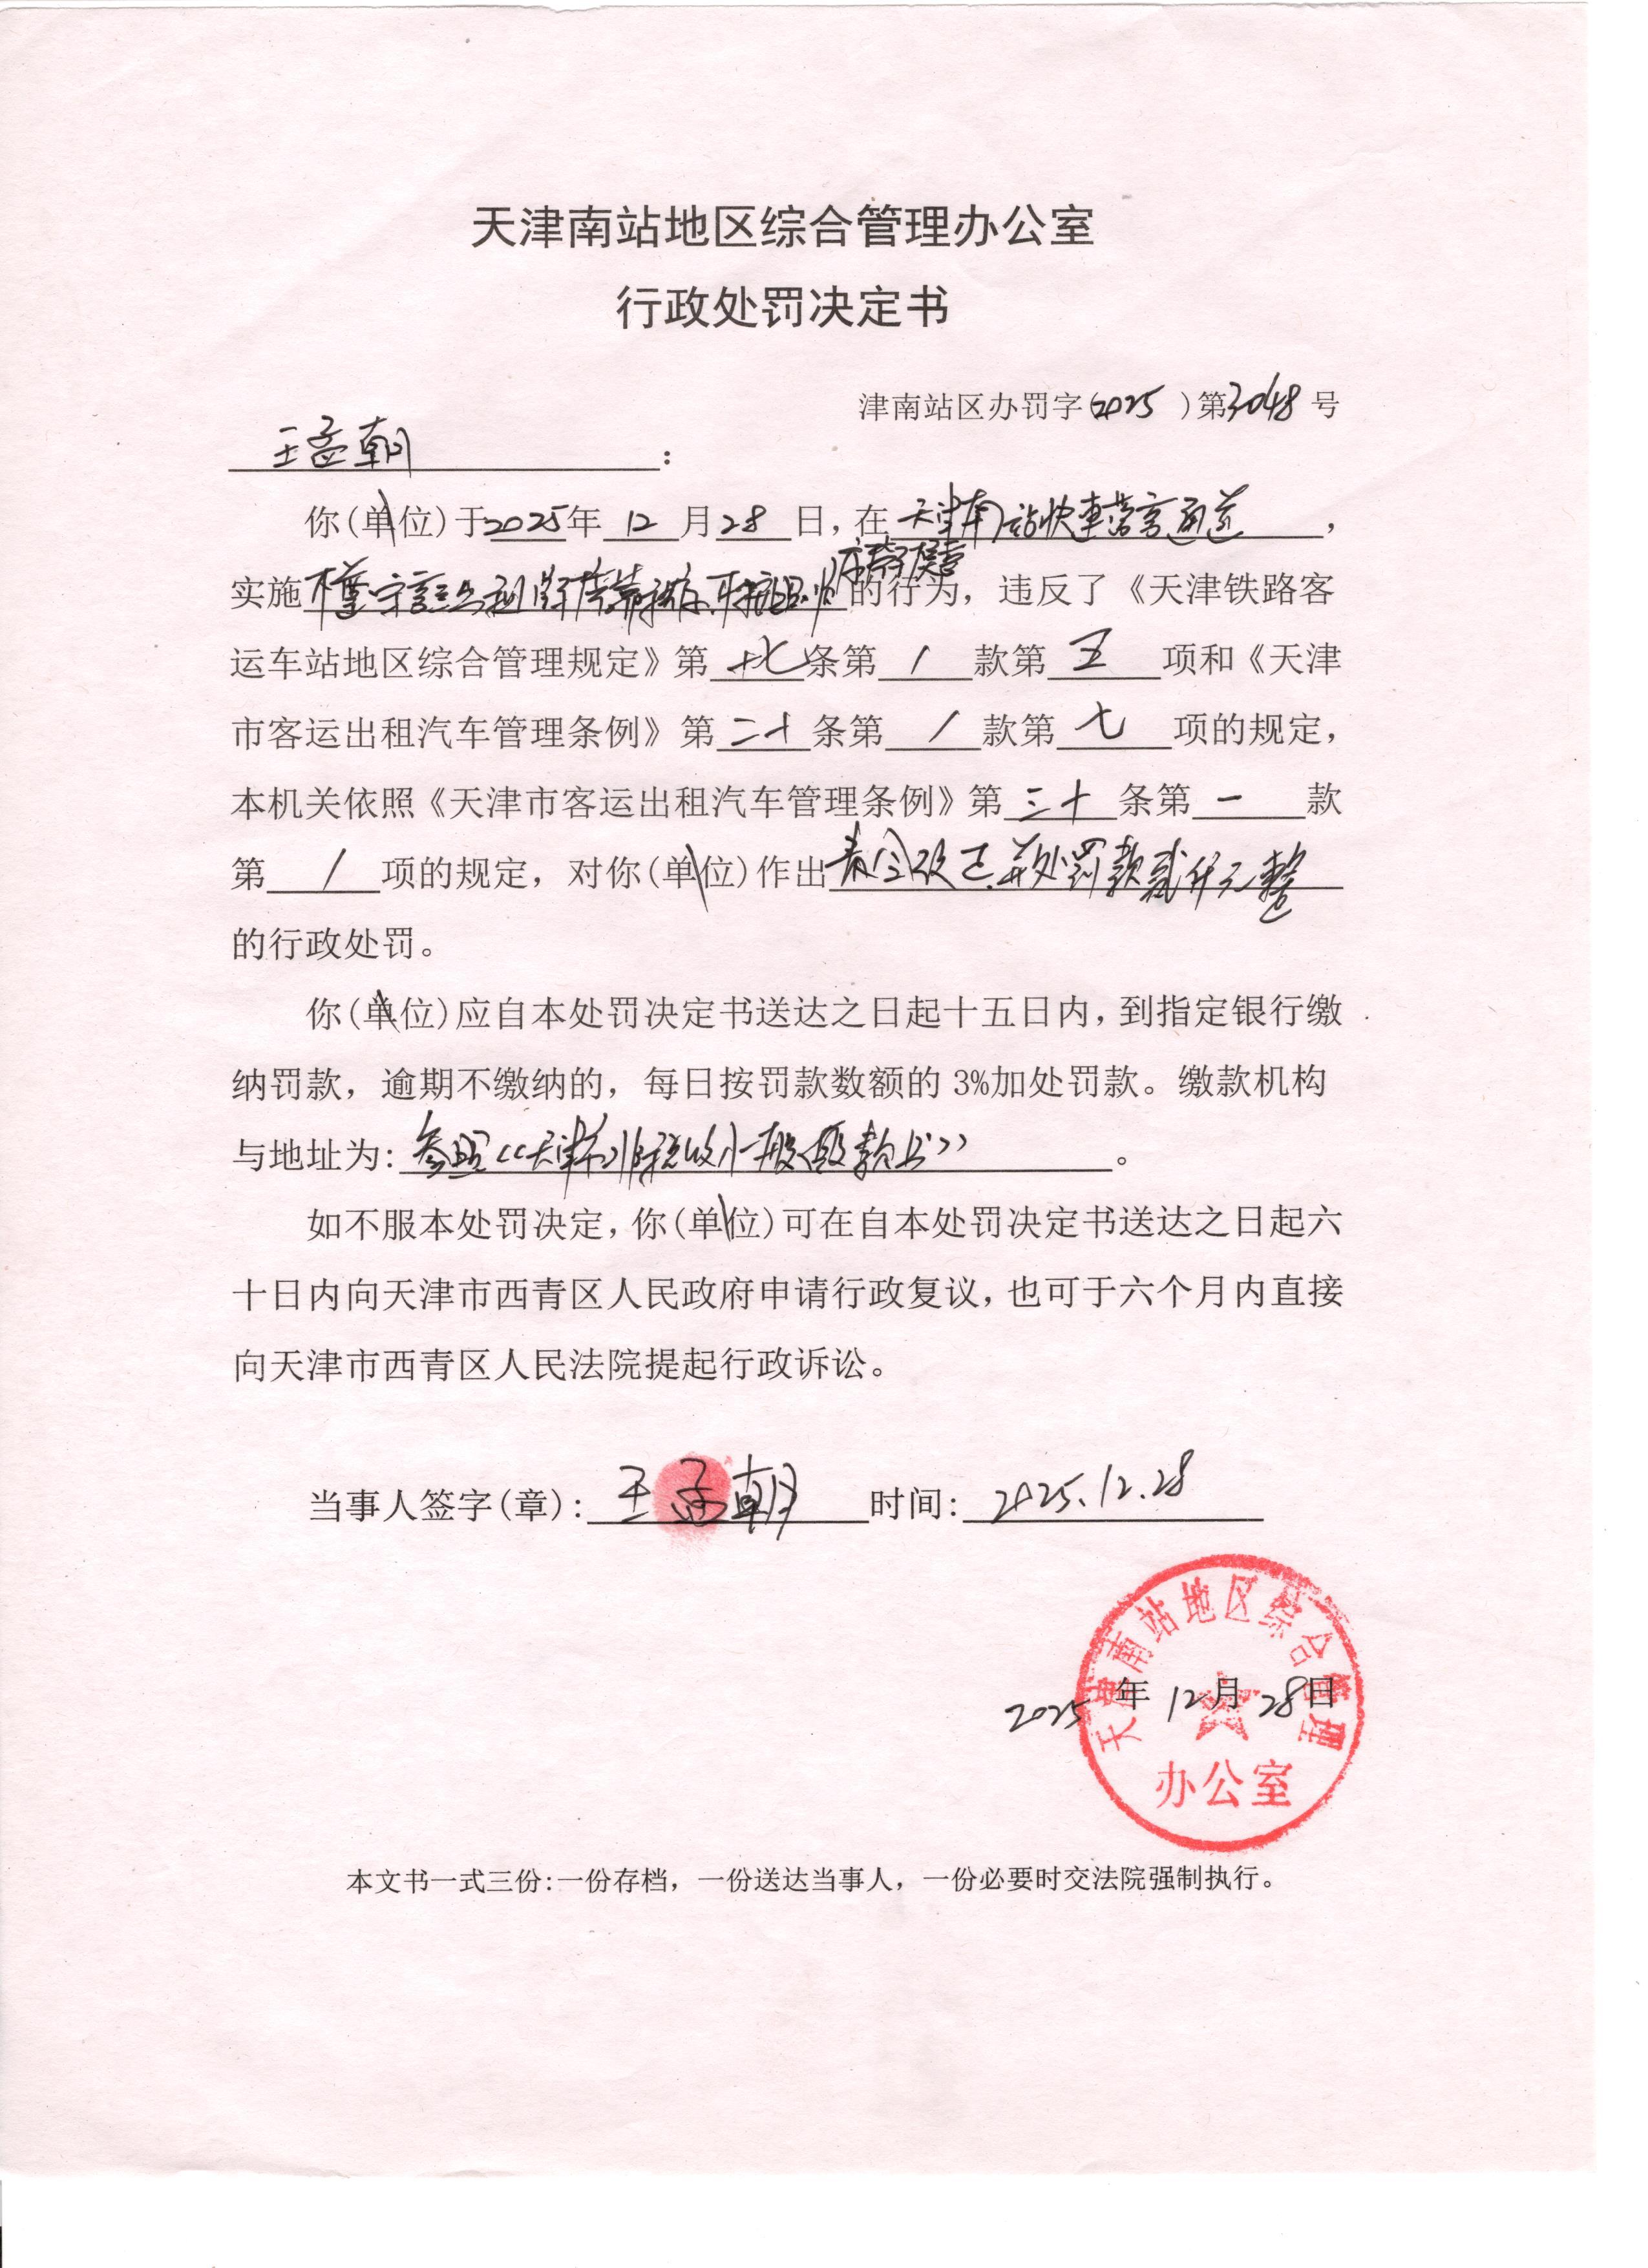 天津南站地区综合管理办公室
行政处罚决定书
津南站区办罚字(2025)第3048号
王孟朝:
你(单位)于2025年12月28日,在天津南站快车营言通道,
实施的行为,违反了《天津铁路客
运车站地区综合管理规定》第十七条第/款第五项和《天津
市客运出租汽车管理条例》第二十条第/款第七项的规定,
本机关依照《天津市客运出租汽车管理条例》第三十条第一款
第/项的规定,对你(单位)作出责令改正,并处罚款贰仟元整
的行政处罚。
你(单位)应自本处罚决定书送达之日起十五日内,到指定银行缴
纳罚款,逾期不缴纳的,每日按罚款数额的3%加处罚款。缴款机构
与地址为:参照《天津市非税收入一般缴款书》。
如不服本处罚决定,你(单位)可在自本处罚决定书送达之日起六
十日内向天津市西青区人民政府申请行政复议,也可于六个月内直接
向天津市西青区人民法院提起行政诉讼。
当事人签字(章):王孟朝 时间:2025.12.28
天津南站地区综合管理
2025年12月28日
办公室
本文书一式三份:一份存档,一份送达当事人,一份必要时交法院强制执行。